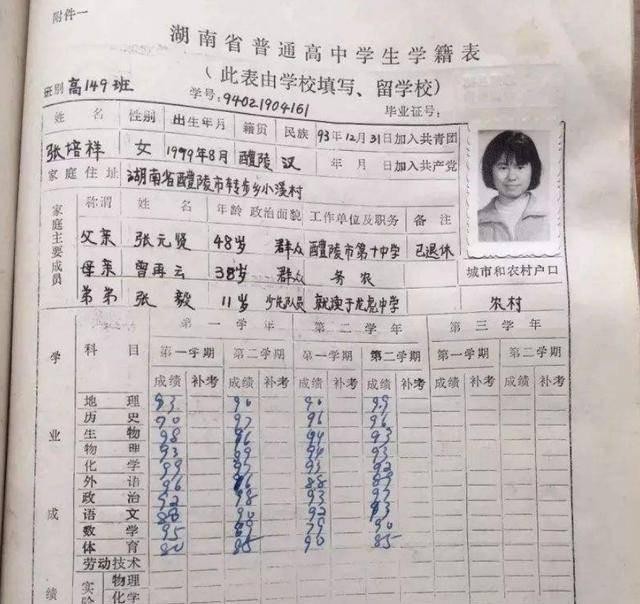 附件一
湖南省普通高中学生学籍表
(此表由学校填写、留学校)
班别 高149班 学号: 94021904161 毕业证号:
姓名 性别 出生年月 籍贯 民族 93年12月31日加入共青团
张培祥 女 1979年8月 醴陵 汉 年 月 日加入共产党
家庭住址 湖南省醴陵市转步乡小溪村
家庭主要成员 称谓 姓名 年龄 政治面貌 工作单位及职务 备注
父亲 张元贤 48岁 群众 醴陵市第十中学 已退休
母亲 曾再云 38岁 群众 务农 城市和农村户口
弟弟 张毅 11岁 少先队员 就读于龙虎中学 农村
学业成绩 科目 第一学年 第二学年 第三学年
第一学期 第二学期 第一学期 第二学期 第一学期 第二学期
成绩 补考 成绩 补考 成绩 补考 成绩 补考 成绩 补考 成绩 补考
地理 93 90 90 99
历史 90 97 96 96
生物 98 96 94 93
物理 93 99 94 93
化学 99 97 92
外语 96 96 88
政治 92 98 93 97
语文 90 92 93
数学 95 79 90
体育 80 85 90 85
劳动技术
实 物理
验 化学